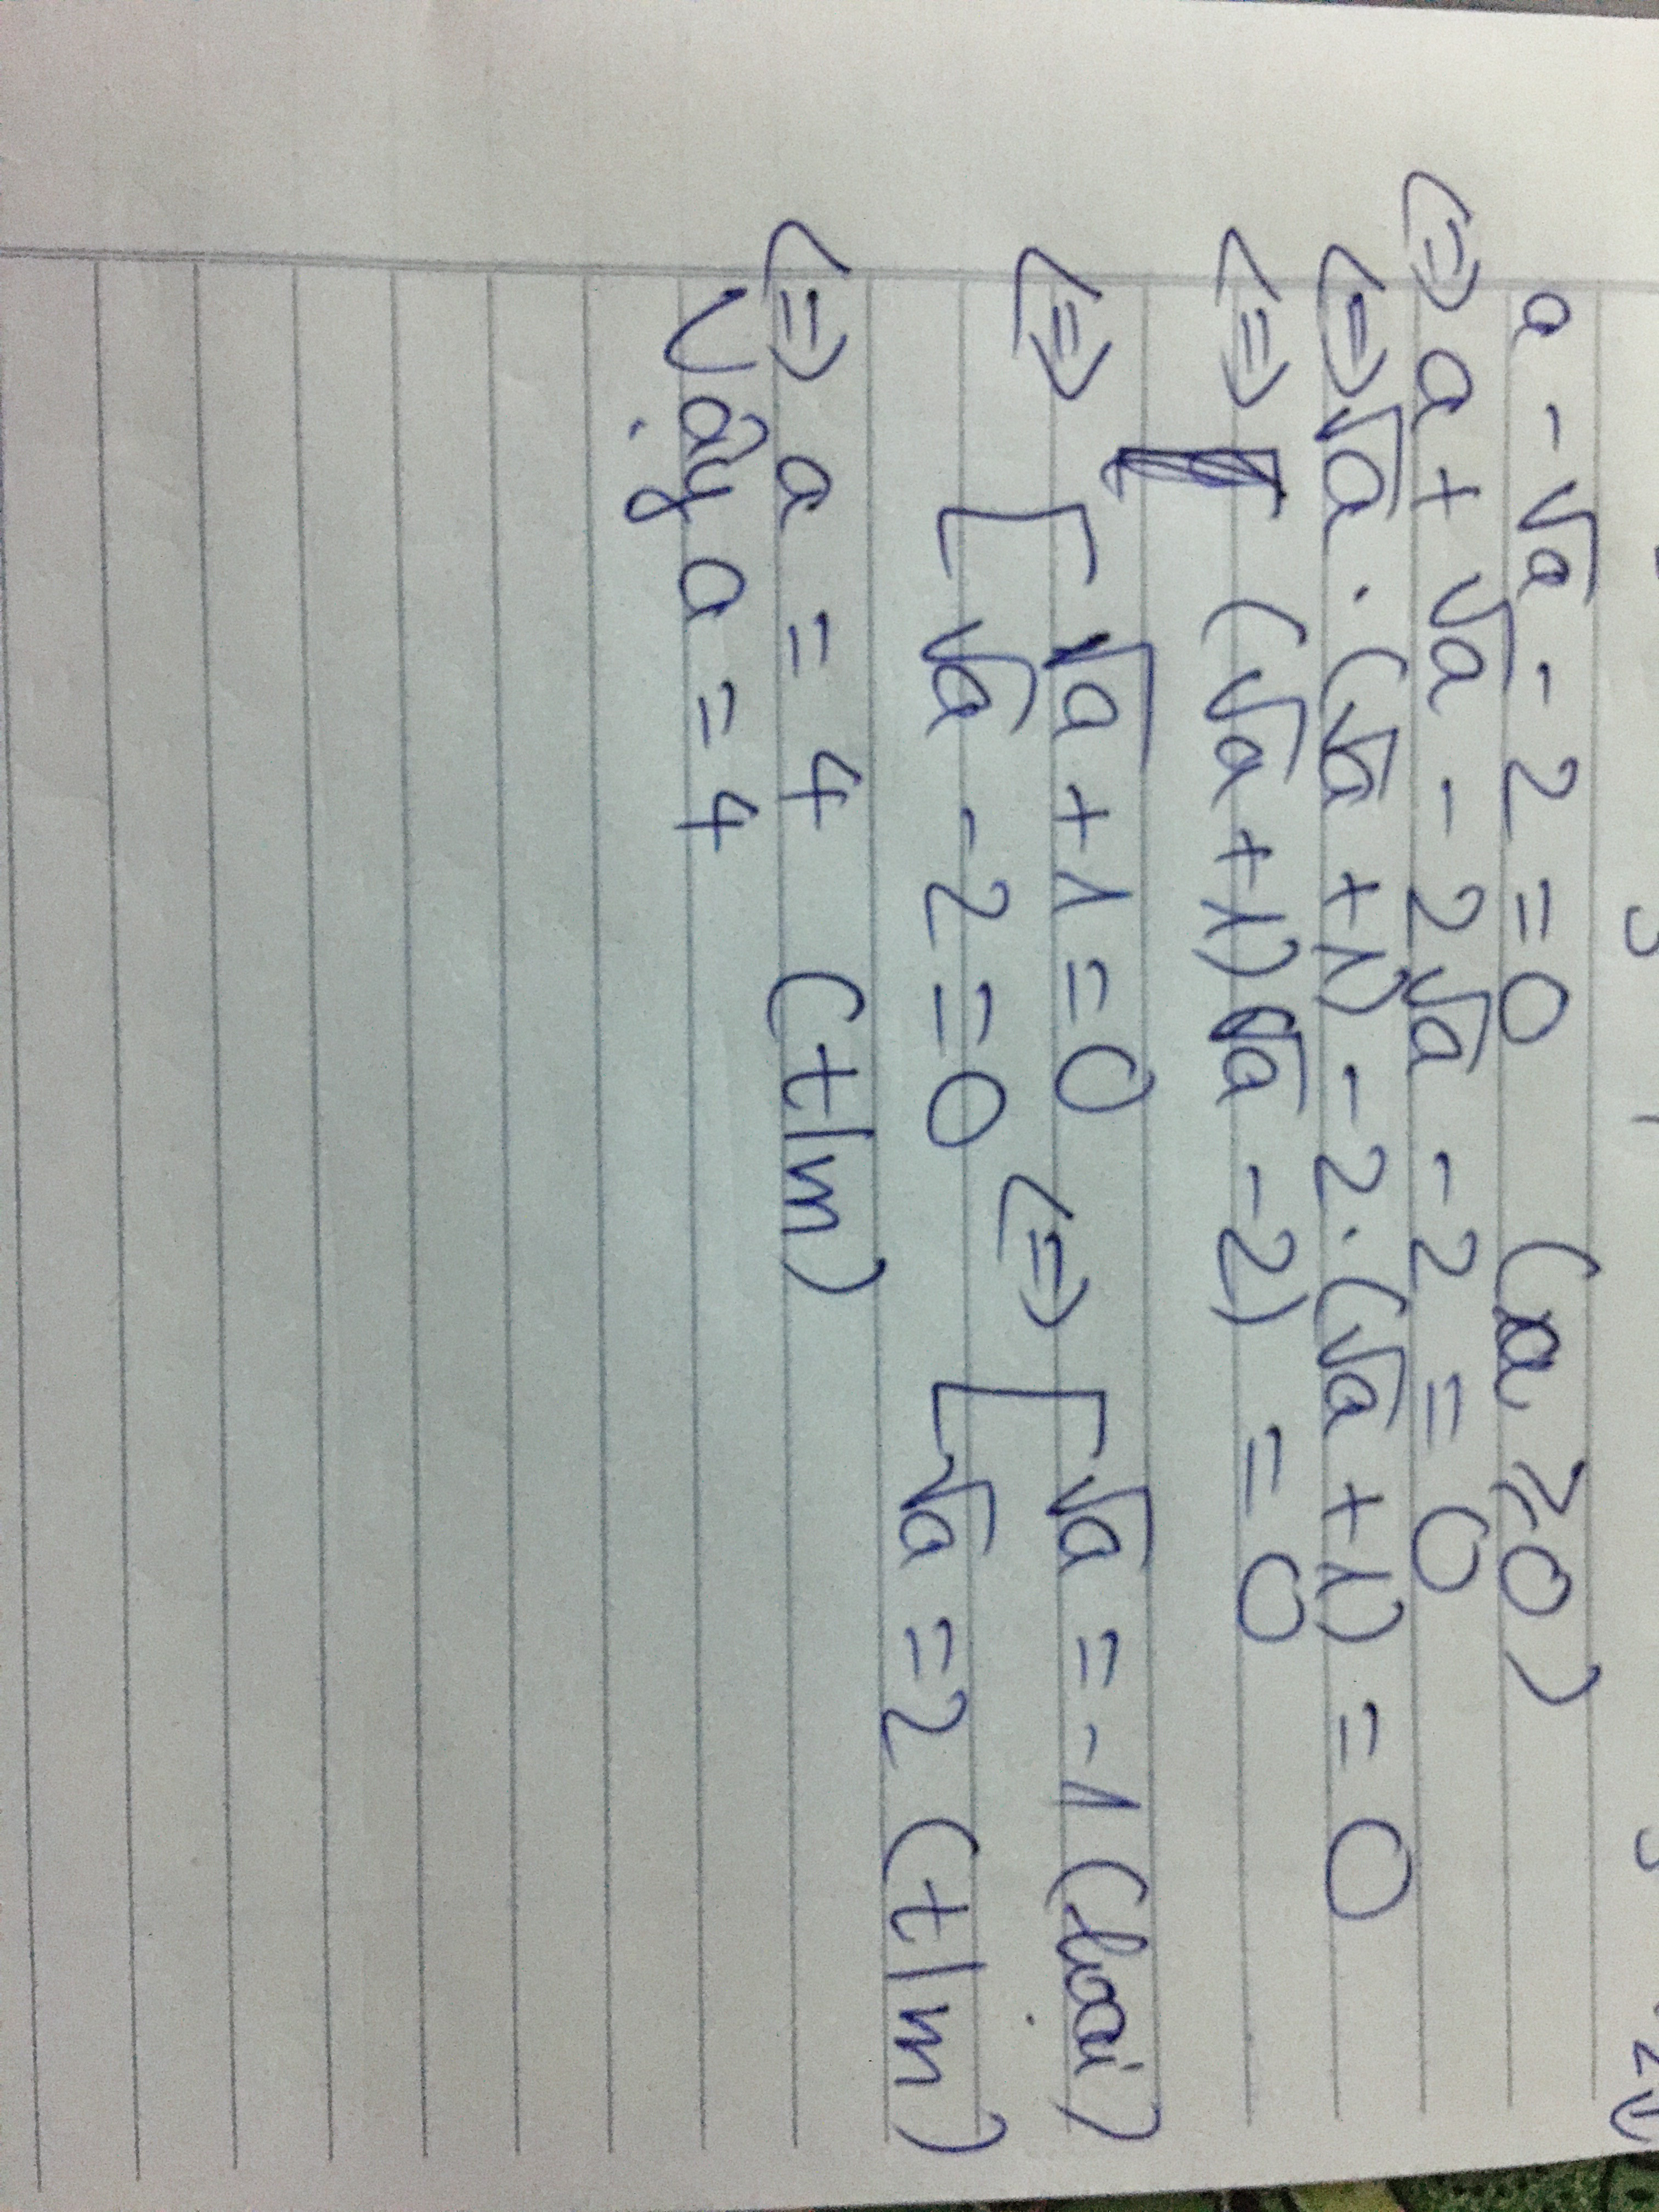 a - √a - 2 = 0 (a ≥ 0)
<=> a + √a - 2√a - 2 = 0
<=> √a . (√a + 1) - 2 . (√a + 1) = 0
<=> (√a + 1)(√a - 2) = 0
<=> [ √a + 1 = 0 <=> [ √a = -1 (loại)
√a - 2 = 0 √a = 2 (t/m)
<=> a = 4 (t/m)
Vậy a = 4